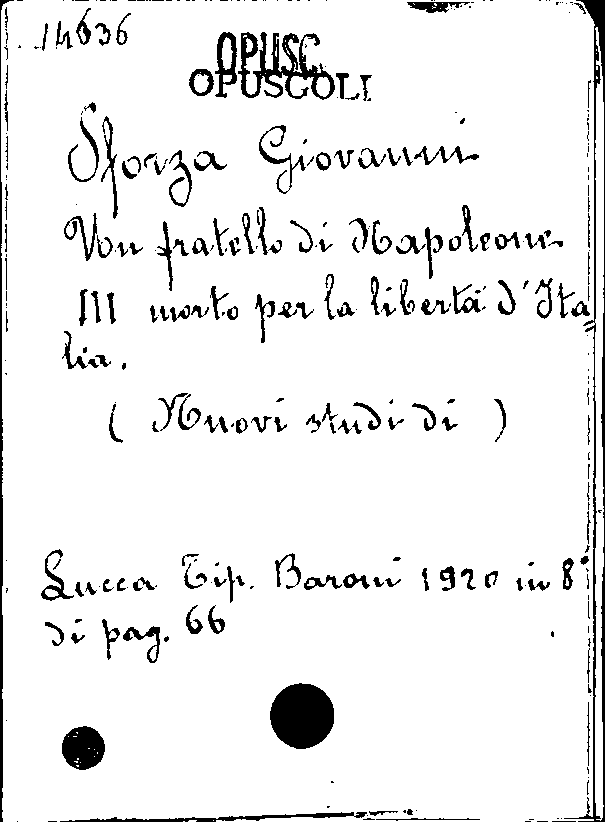 14636
OPUSC.
OPUSCOLI
Sforza Giovanni
Un fratello di Napoleone
III morto per la libertà d'Ita=
lia.
( Nuovi studi di )
Lucca Tip. Baroni 1920 in 8°
di pag. 66